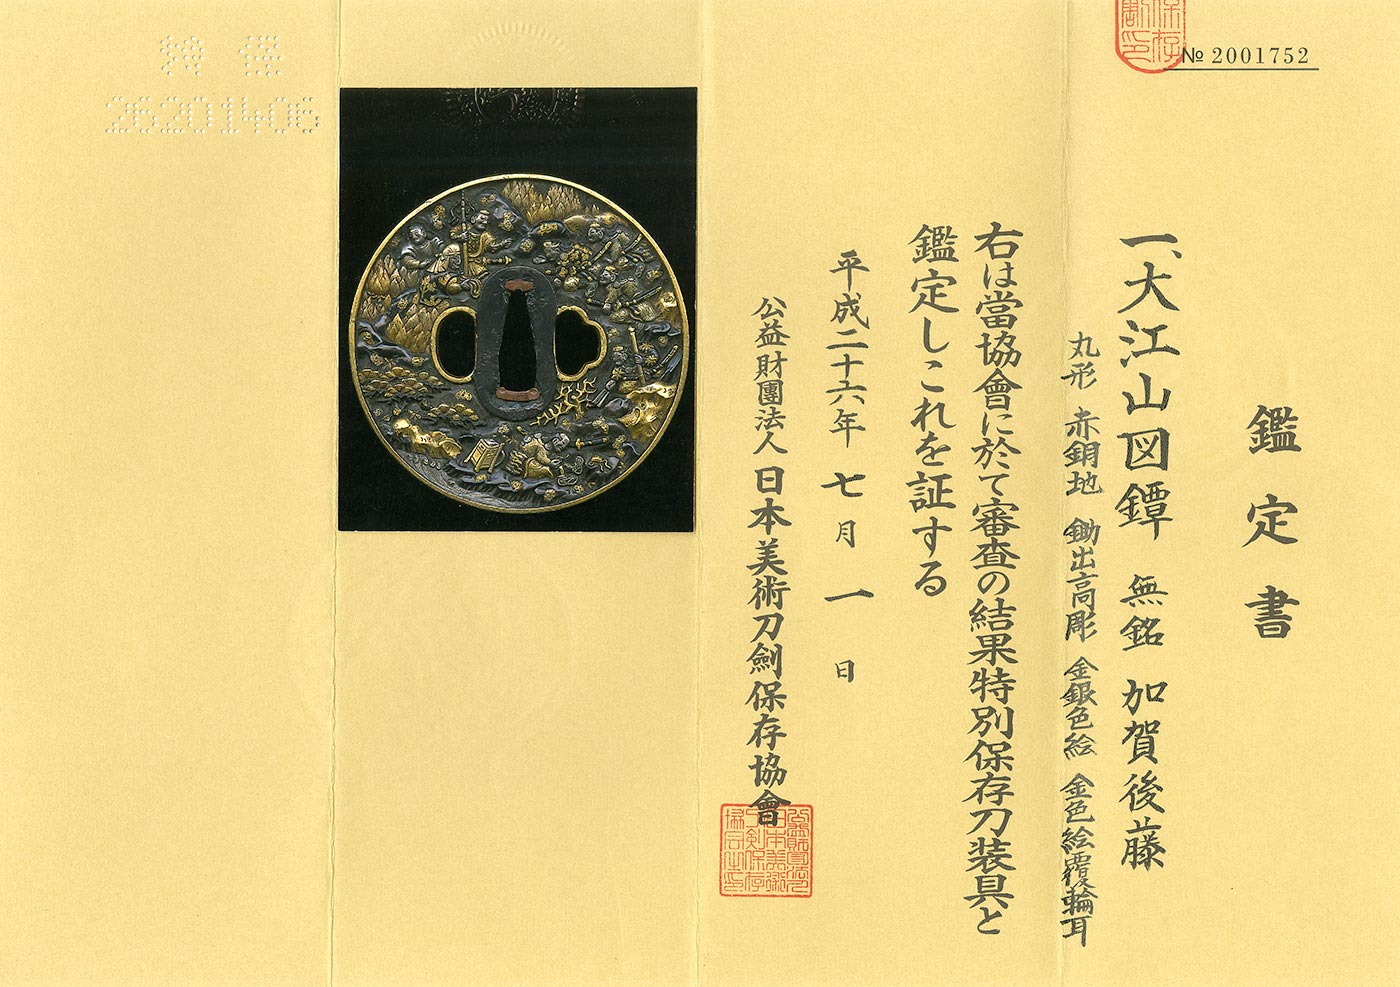 № 2001752
鑑定書
一、大江山図鐔 無銘 加賀後藤
丸形 赤銅地 鋤出高彫 金銀色絵 金色絵覆輪耳
右は當協會に於て審査の結果特別保存刀装具と
鑑定しこれを証する
平成二十六年 七月 一日
公益財團法人 日本美術刀劍保存協會
26201406